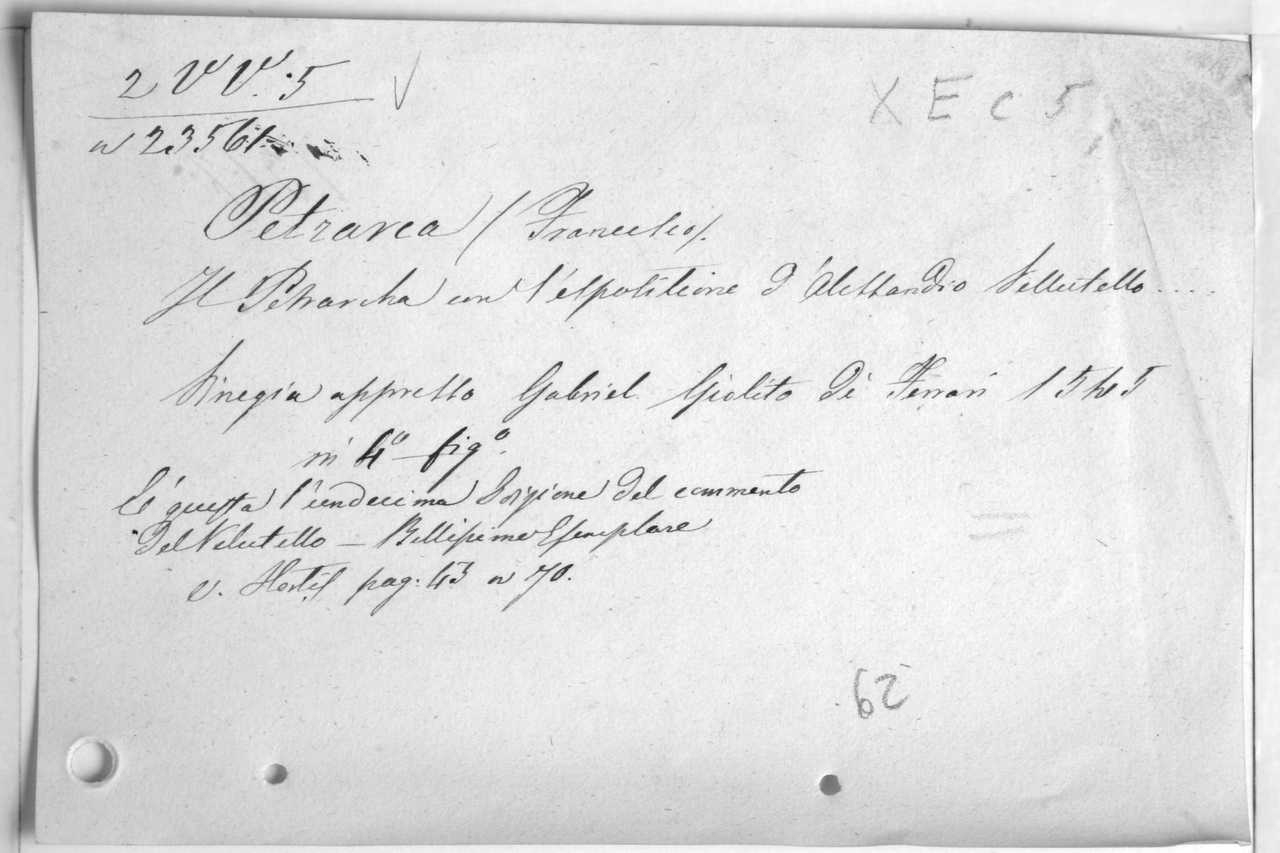 2 V V. 5 √
n 23561
X E C 5
Petrarca (Francesco).
Il Petrarcha con l'espositione d'Alessandro Vellutello ....
Vinegia appresso Gabriel Giolito di Ferrari 1545
in 4° fig°.
E' questa l'undecima Edizione del commento
del Velutello — Bellissimo Esemplare
v. Hortis pag. 43 n 70.
62